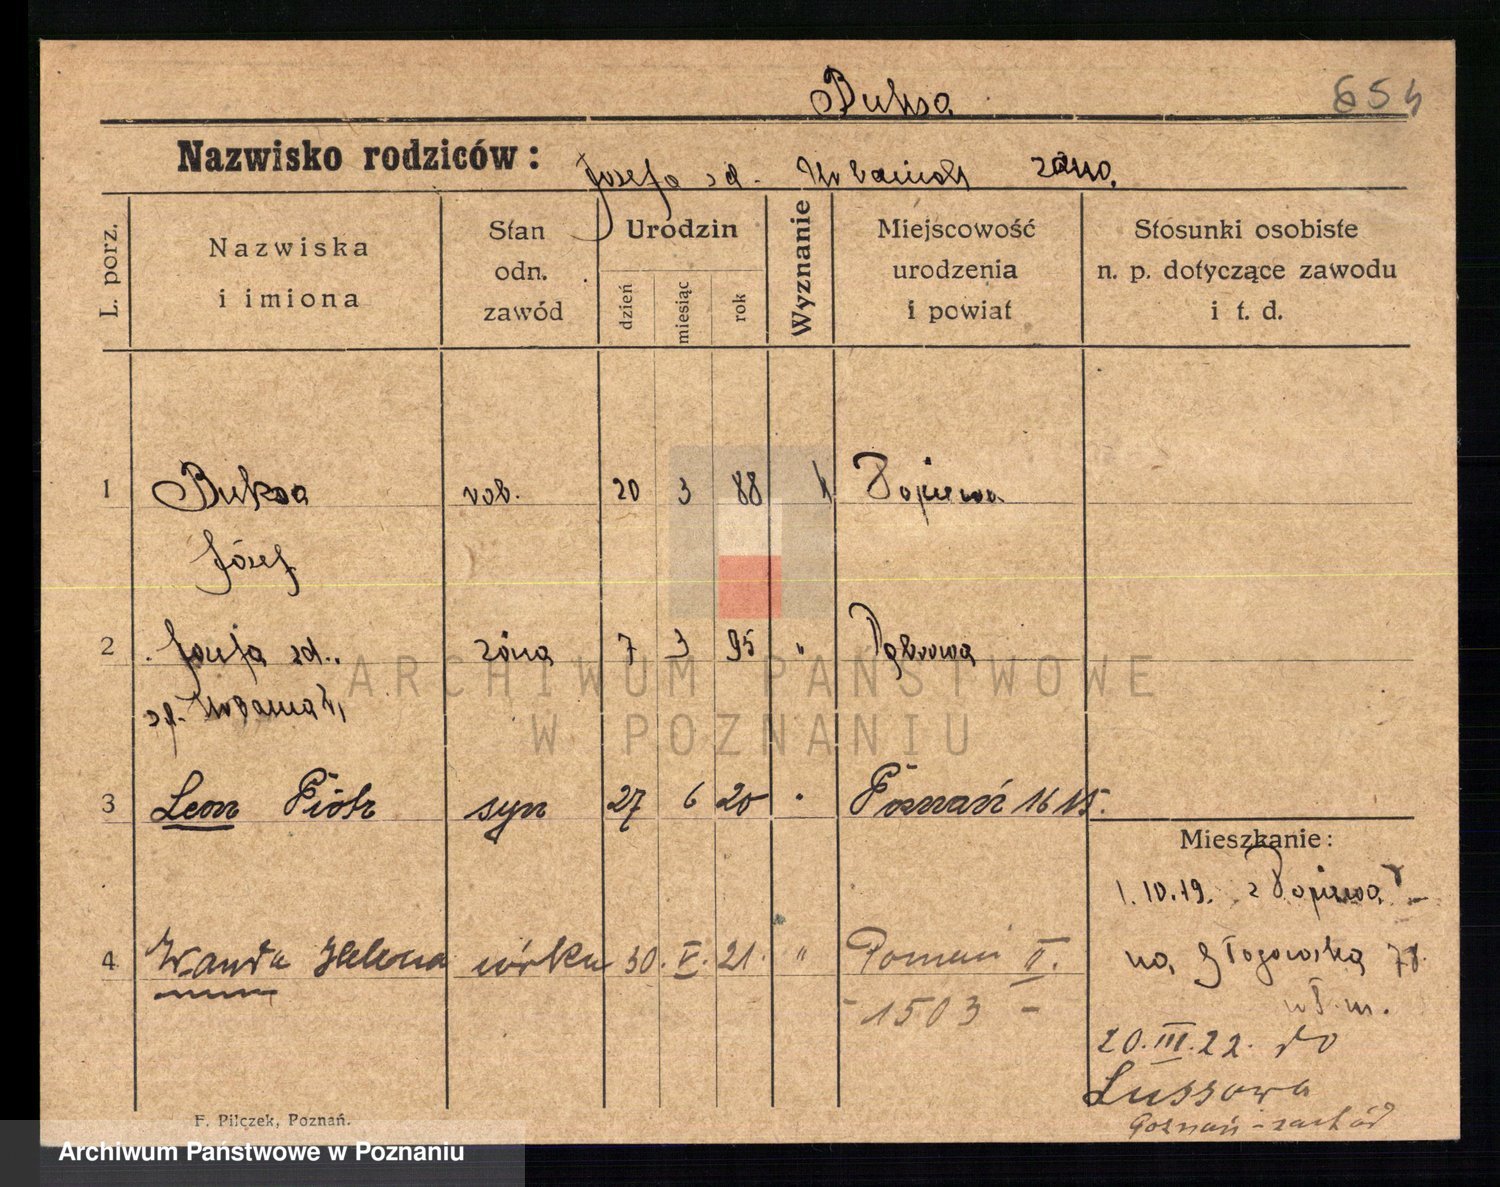 Buksa 654
Nazwisko rodziców: Józefa zd. Urbaniak żona.
L. porz.
Nazwiska i imiona
Stan odn. zawód
Urodzin
dzień
miesiąc
rok
Wyznanie
Miejscowość urodzenia i powiat
Stosunki osobiste n. p. dotyczące zawodu i t. d.
1 Buksa rob. 20 3 88 k Dopiewa
Józef
2 Józefa zd. żona 7 3 95 " Dąbrowa
zd. Urbaniak
3 Leon Piotr syn 27 6 20 " Poznań 1615.
Mieszkanie:
1.10.19. z Dopiewa
4 Wanda Helena córka 30. V. 21. " Poznań II.
- 1503 -
na Głogowska 78.
wł. m.
20.III.22. do
Lussowa
Poznań - zachód
F. Pilczek, Poznań.
ARCHIWUM PAŃSTWOWE
W POZNANIU
Archiwum Państwowe w Poznaniu